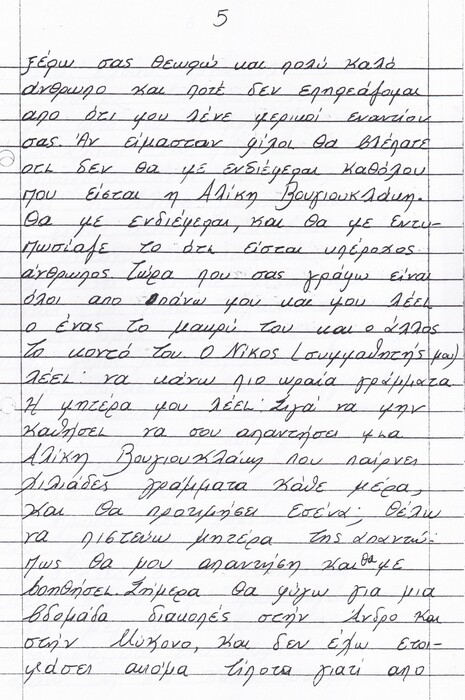 5
ξέρω σας θεωρώ και πολύ καλό
άνθρωπο και ποτέ δεν επηρεάζομαι
απο ότι μου λένε μερικοί εναντίον
σας. Αν είμασταν φίλοι θα βλέπατε
οτι δεν θα με ενδιέφεραι καθόλου
που είσται η Αλίκη Βουγιουκλάκη.
Θα με ενδιέφεραι, και θα με εντυ-
πωσίαζε το ότι είσται υπέροχος
άνθρωπος. Τώρα που σας γράφω είναι
όλοι απο πάνω μου και μου λέει
ο ένας το μακρύ του και ο άλλος
το κοντό του. Ο Νίκος (συμμαθητής μου)
λέει: να κάνω πιο ωραία γράμματα
Η μητέρα μου λέει: Σιγά να μην
καθήσει να σου απαντήσει μια
Αλίκη Βουγιουκλάκη που παίρνει
χιλιάδες γράμματα κάθε μέρα,
και θα προτιμήσει εσένα; Θέλω
να πιστεύω μητέρα της απαντώ:
πως θα μου απαντήση και θα με
βοηθήσει. Σήμερα θα φύγω για μια
βδομάδα διακοπές στήν Άνδρο και
στήν Μύκονο, και δεν έχω ετοι-
μάσει ακόμα τίποτα γιατί απο